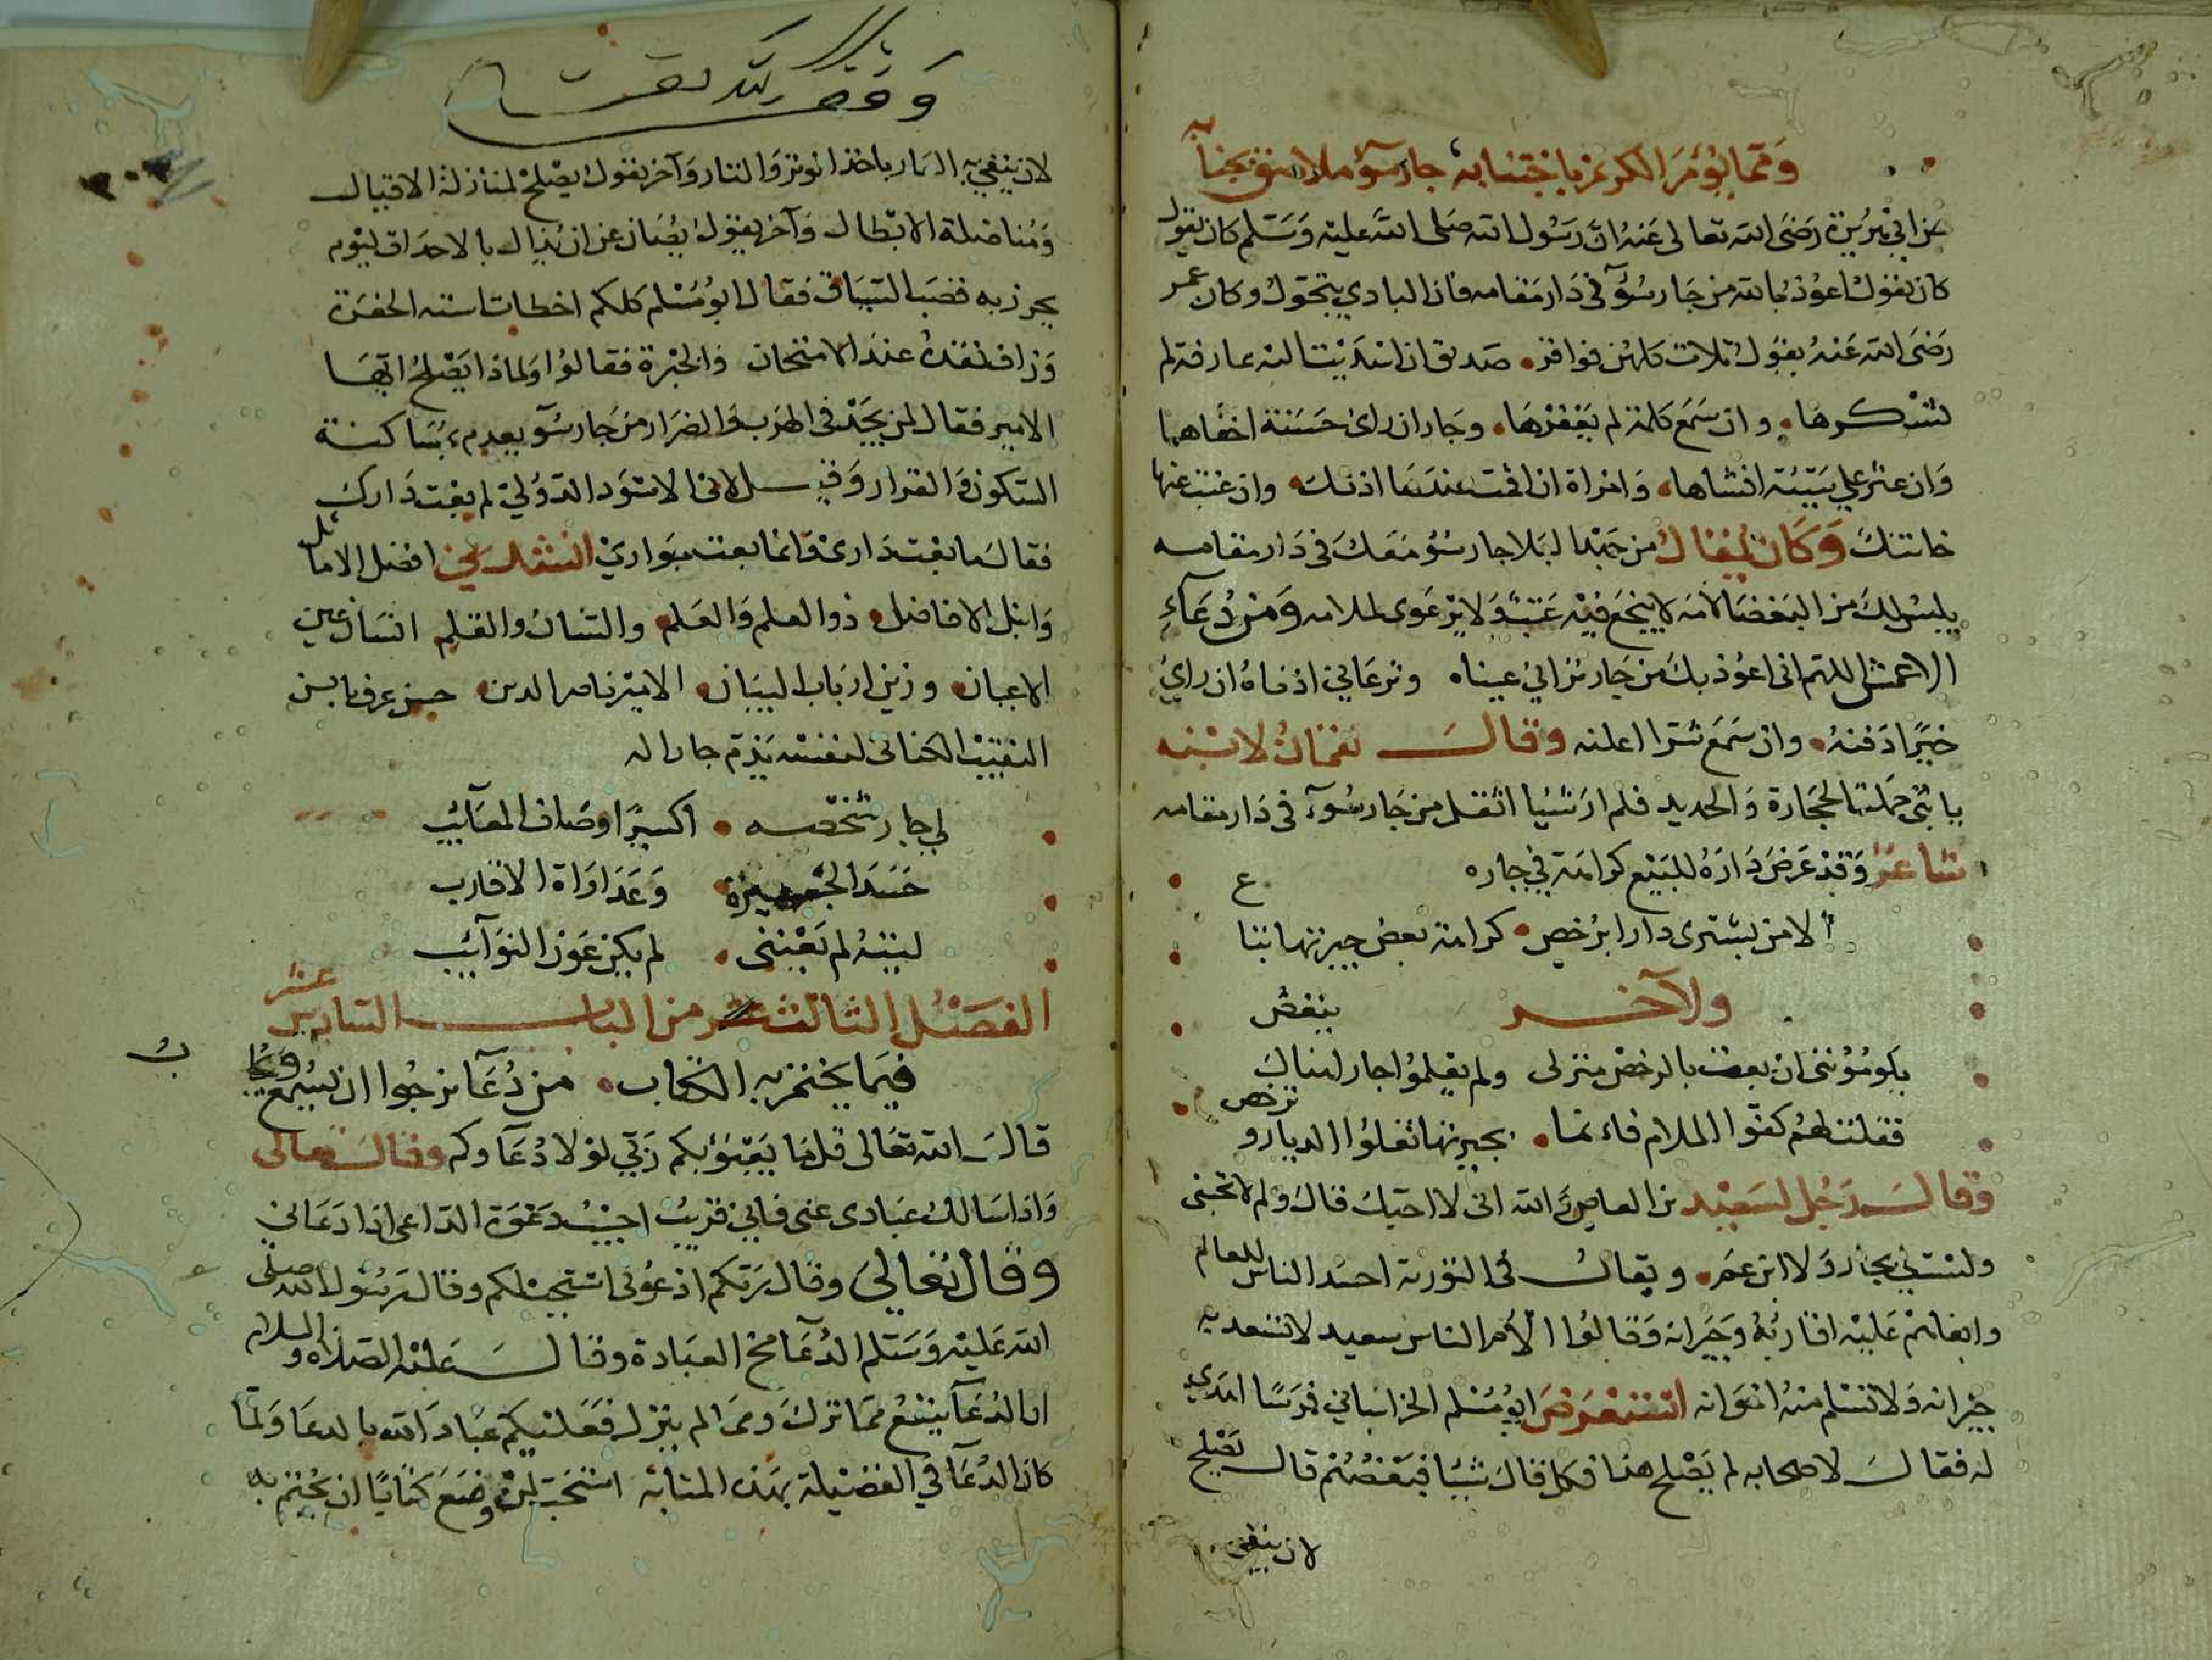 ومما يؤمر الكريم باجتنابه جار سوء ملاصق بجنابه
عن ابي هريرة رضى الله تعالى عنه ان رسول الله صلى الله عليه وسلم كان يقول
كان يقول اعوذ بالله من جار سوء في دار مقامه فان البادي يتحول وكان عمر
رضى الله عنه يقول ثلاث كلهن فواقر صديق ان اسديت اليه عارفة لم
يشكرها وان سمع كلمة لم يغفرها وجار ان راى حسنة اخفاها
وان عثر على سيئة افشاها وامراة ان اقمت عندها اذتك وان غبت عنها
خانتك وكان يقال من جهد البلا جار سوء معك في دار مقامه
يلبس لك من البغضا لامه لا ينجع فيه عتب ولا يرعوى لملامه ومن دعاء
الاعمش اللهم انى اعوذ بك من جار تراني عيناه وترعاني اذناه ان راي
خيرا دفنه وان سمع شرا اعلنه وقال لقمان لابنه
يا بنى حملت الحجارة والحديد فلم ار شيا اثقل من جار سوء في دار مقامه
شاعر وقد عرض داره للبيع كرامة في جاره
الا من يشترى دارا برخص كراهة بعض جيرتها تباع
ولآخر
يلومونني ان بعت بالرخص منزلى ولم يعلموا جارا هناك ينغض
فقلت لهم كفوا الملام فانما بجيرتها تغلوا الديار وترخص
وقال رجل لسعيد بن العاص والله انى لا احبك قال ولم لا تحبنى
ولست لي بجار ولا ابن عم ويقال في التورية احسد الناس للعالم
وابغاهم عليه اقاربه وجيرانه وقالوا الأم الناس سعيد لا تسعد به
جيرانه ولا تسلم منه اخوانه استعرض ابو مسلم الخراساني فرسا اهدي
له فقال لاصحابه لم يصلح هذا فكل قال شيا فبعضهم قال يصلح
لان ينفى
وقف لله تعالى
لان ينفي به العار ياخذ الوتر والثار وآخر يقول يصلح لمنازلة الاقيال
ومناضلة الابطال وآخر يقول يصان عن ان يذال بالاحداق ليوم
يحرز به قصب السباق فقال ابو مسلم كلكم اخطات استه الحفرة
وزاف نقده عند الامتحان والخبرة فقالوا ولماذا يصلح ايها
الامير فقال لمن يجد فى الهرب والفرار من جار سوء يعدم بمساكنة
السكون والقرار وقيل لابى الاسود الدولي لم بعت دارك
فقال ما بعت دارى وانما بعت بواري انشدني افضل الاماثل
وانبل الافاضل ذو العلم والعلم واللسان والقلم انسان عين
الاعيان وزين ارباب البيان الامير ناصر الدين حسن عرف بابن
النقيب الكناني لنفسه يذم جارا له
لي جار شخصه اكسير اوصاف المعائب
حسد الجيرة وعداواة الاقارب
ليته لم يعبنى لم يكن عون النوائب
الفصل الثالث من الباب السادس عشر
فيما يختم به الكتاب من دعا نرجوا ان يسمع ويجاب
قال الله تعالى قل ما يعبؤ بكم ربي لولا دعاوكم وقال تعالى
واذا سالك عبادى عنى فاني قريب اجيب دعوة الداعى اذا دعاني
وقال تعالى وقال ربكم ادعونى استجب لكم وقال رسول الله صلى
الله عليه وسلم الدعا مخ العبادة وقال عليه الصلاة والسلام
ان الدعا ينفع مما نزل ومما لم ينزل فعليكم عباد الله بالدعا ولما
كان الدعا في الفضيلة بهذه المثابة استحب لمن وضع كتابا ان يختم به